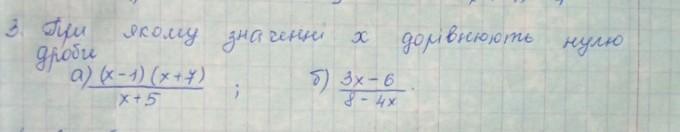 3. При якому значенні x дорівнюють нулю
дроби
а) (x-1)(x+7) / x+5 ; б) 3x-6 / 8-4x .